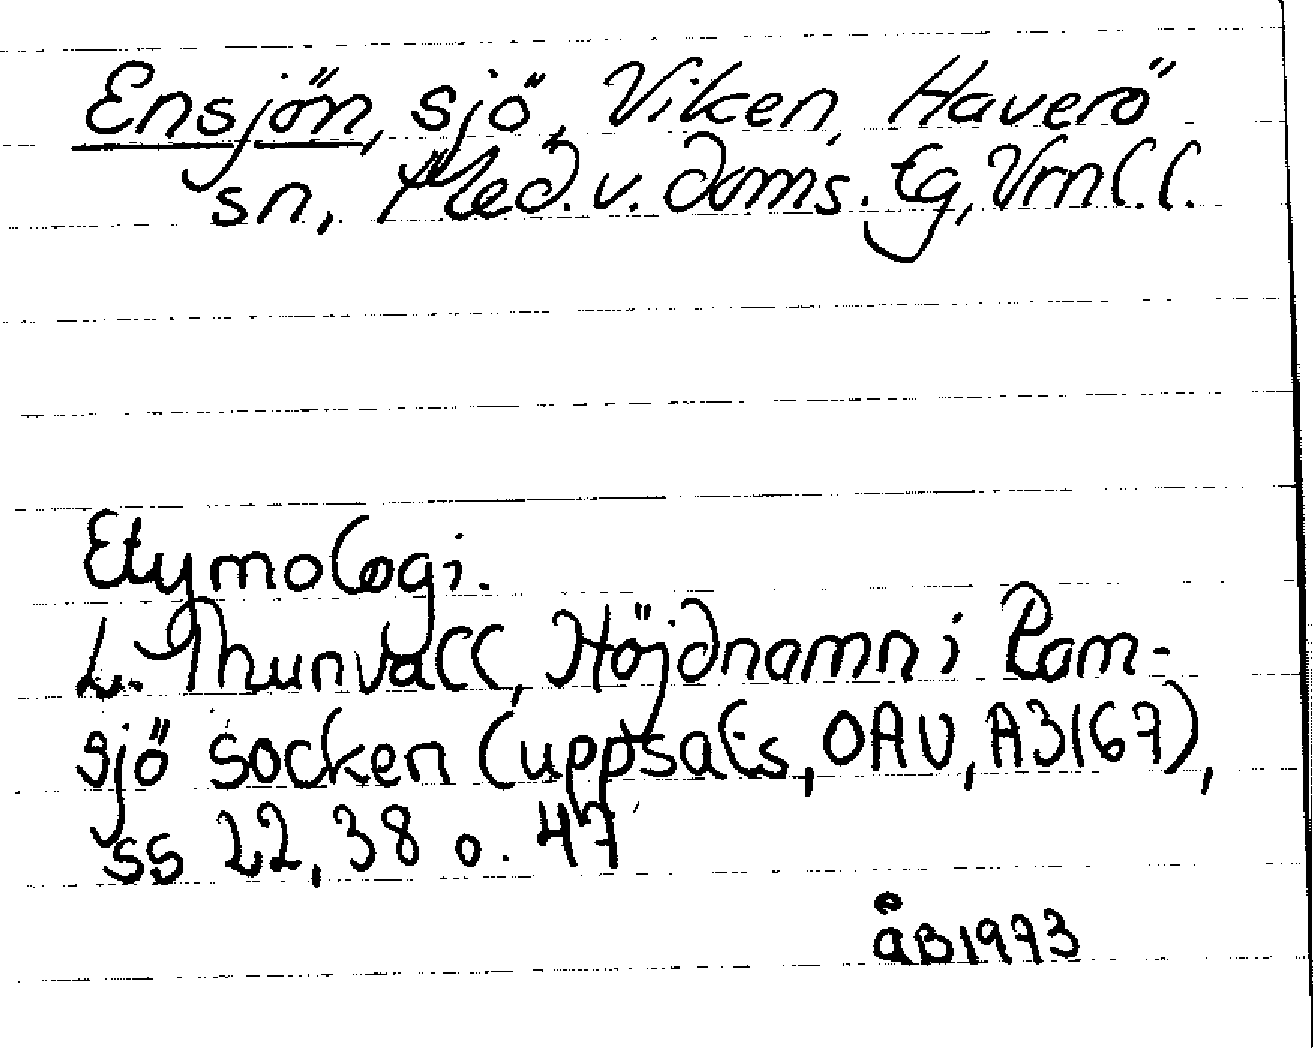 Ensjön, sjö, Viken, Haverö
sn, Med. v. doms. tg, Vrnl.l.
Etymologi.
L. Thunvall, Höjdnamn i Ram-
sjö socken (uppsats, OAU, A3167),
ss 22, 38 o. 47
åB1973